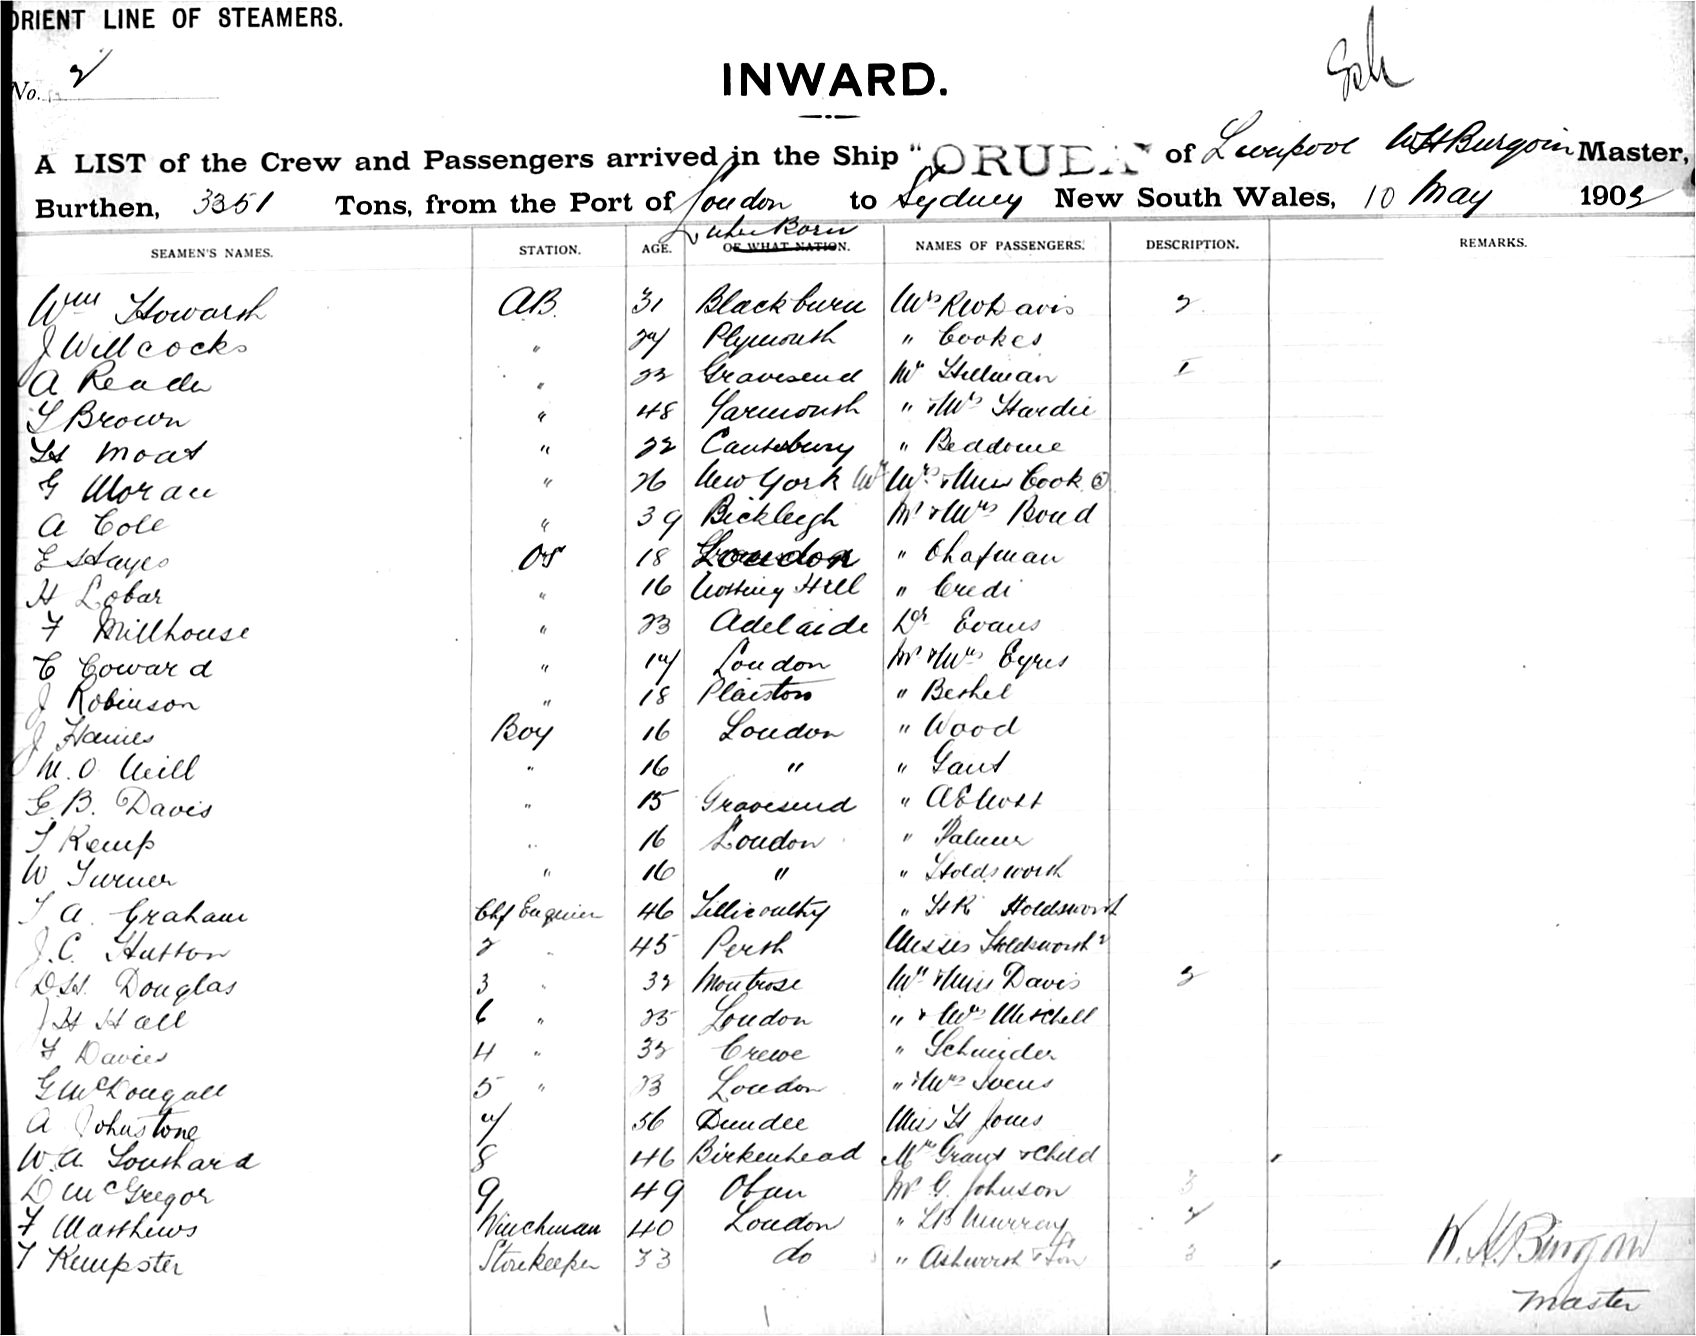 ORIENT LINE OF STEAMERS.
No. 2
INWARD.
A LIST of the Crew and Passengers arrived in the Ship "ORUBA" of Liverpool WH Burgoin Master,
Burthen, 3351 Tons, from the Port of London to Sydney New South Wales, 10 May 1902
Where Born
SEAMEN'S NAMES. STATION. AGE. OF WHAT NATION. NAMES OF PASSENGERS. DESCRIPTION. REMARKS.
Wm Howarth AB. 31 Blackburn Mrs RW Davis 2
J Willcocks " 27 Plymouth " Cookes
A Reader " 22 Gravesend Mr Hillman 1
T Brown " 48 Yarmouth " & Mrs Hardie
H Moat " 22 Canterbury " Beddome
G Moran " 26 New York Mr Mrs & Miss Cook 3
A Cole " 39 Bickleigh Mr & Mrs Bond
E Hayes OS 18 London " Chapman
H Lobar " 16 Notting Hill " Credi
F Millhouse " 23 Adelaide Dr Evans
C Coward " 17 London Mr & Mrs Eyres
J Robinson " 18 Plaistow " Bethel
J Haines Boy 16 London " Wood
M. O Neill " 16 " " Gant
G. B. Davis " 15 Gravesend " A E Nott
T Kemp " 16 London " Palmer
W Turner " 16 " " Holdsworth
T A. Graham Chf Engineer 46 Tillicoultry " H R Holdsworth
J. C. Hutton 2 " 45 Perth Misses Holdsworth 2
D. H. Douglas 3 " 32 Montrose Mrs & Miss Davis 2
J H Hall 6 " 25 London " & Mrs Mitchell
F Davies 4 " 32 Crewe " Schneider
G McDougall 5 " 23 London " & Mrs Ivens
A Johnstone 7 56 Dundee Miss H Jones
W. A. Southard 8 46 Birkenhead Mrs Grant & Child
D McGregor 9 49 Oban Mr G. Johnson 3
F Matthews Winchman 40 London " L B Murray 2
T Kempster Storekeeper 33 do " Ashworth & Son 3
W. H. Burgoin
Master